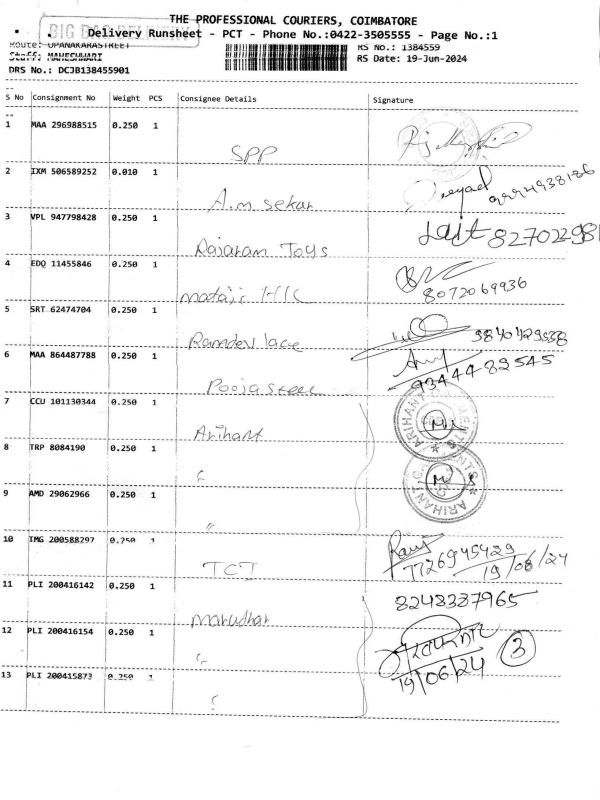 THE PROFESSIONAL COURIERS, COIMBATORE
BIG BAG DELIVERY
Delivery Runsheet - PCT - Phone No.:0422-3505555 - Page No.:1
Route: OPANAKARASTREET
RS No.: 1384559
Staff: MAHESHWARI
RS Date: 19-Jun-2024
DRS No.: DCJB138455901
S No Consignment No Weight PCS Consignee Details Signature
1 MAA 296988515 0.250 1 SPP
2 IXM 506589252 0.010 1 A.m sekar
3 VPL 947798428 0.250 1 Rajaram Toys
4 EDQ 11455846 0.250 1 mataji H/C 8072069936
5 SRT 62474704 0.250 1 Ramdev lace
6 MAA 864487788 0.250 1 Pooja Steel 93444 82545
7 CCU 101130344 0.250 1 Arihant
8 TRP 8084190 0.250 1 "
9 AMD 29062966 0.250 1 "
10 IMG 200588297 0.250 1 TCT 7726945429 19/06/24
11 PLI 200416142 0.250 1 marudhar 8248387965
12 PLI 200416154 0.250 1 " 3
13 PLI 200415873 0.250 1 " 19/06/24